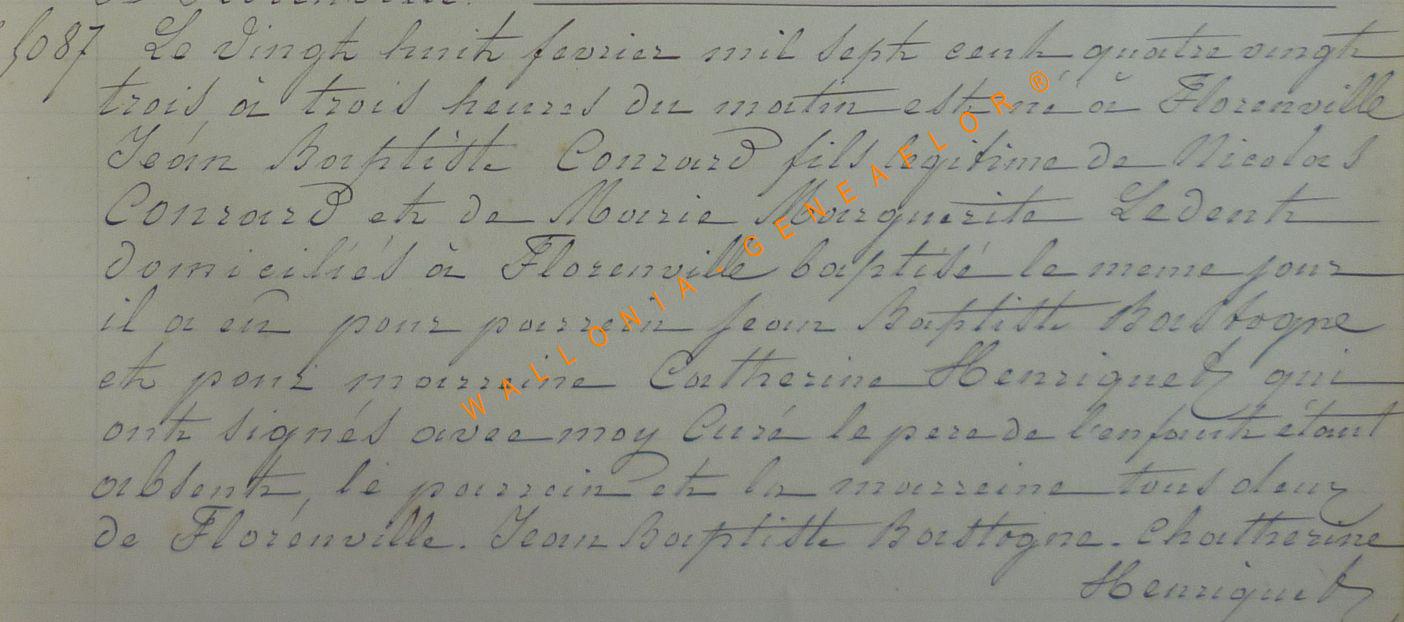 5087 Le vingt huit fevrier mil sept cent quatre vingt
trois, à trois heures du matin est né à Florenville
Jean Baptiste Conrard fils legitime de Nicolas
Conrard et de Marie Marguerite Ledent
domiciliés à Florenville baptisé le meme jour
il a eu pour parrein Jean Baptiste Bastogne
et pour marreine Catherine Henriquet qui
ont signés avec moy Curé le pere de l'enfant étant
absent, le parrein et la marreine tous deux
de Florenville. Jean Baptiste Bastogne. Chatherine
Henriquet
WALLONIA - GENEAFLOR ®